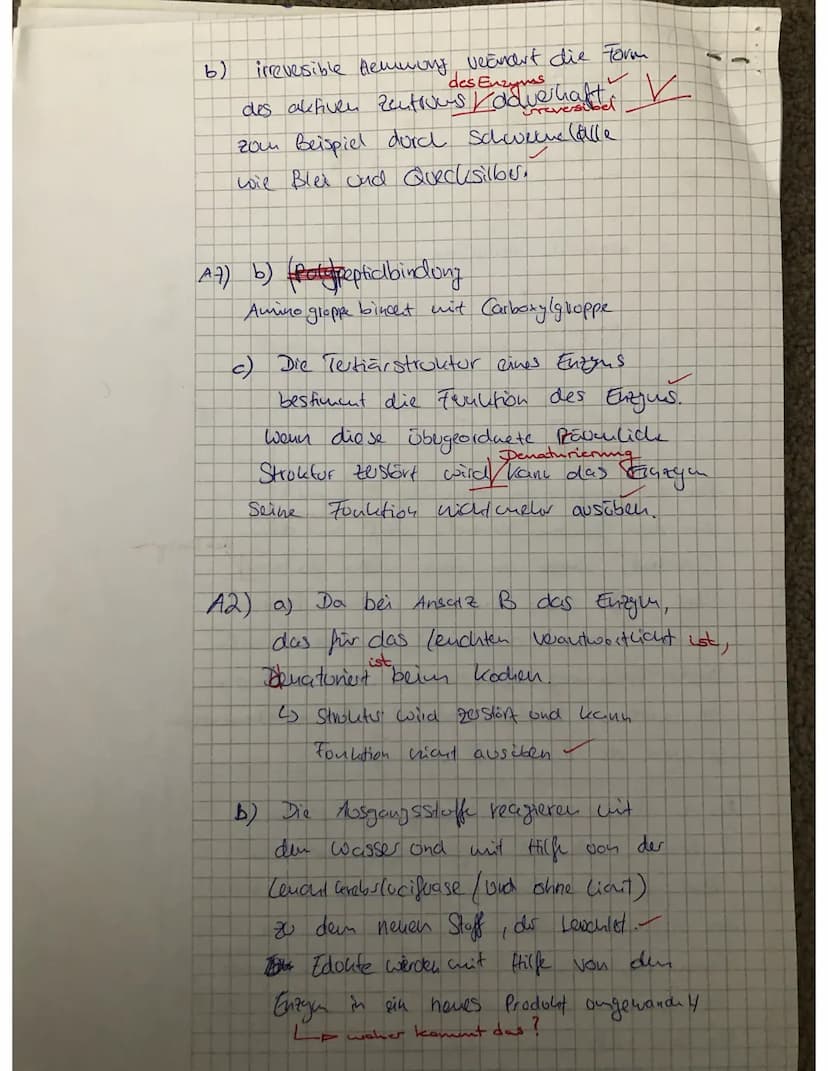 b) irrevesible Hemmung verändert die Form
des Enzyms
des aktiven Zentrums dauerhaft.
irreversibel
zum Beispiel durch Schwermetalle
wie Blei und Quecksilber.
A7) b) (Poly)peptidbindung
Aminogroppe bindet mit Carboxylgruppe
c) Die Tertiärstruktur eines Enzyms
bestimmt die Funktion des Enzyms.
Wenn diese übergeordnete Räumliche
Denaturierung
Struktur zerstört wird kann das Enzym
Seine Funktion nicht mehr ausüben.
A2) a) Da bei Ansatz B das Enzym,
das für das leuchten verantwortlicht ist,
ist
Denaturiert beim kochen.
↳ Struktur wird zerstört und kann
Funktion nicht ausüben
b) Die Ausgangsstoffe reagieren mit
dem Wasser und mit Hilfe von der
(und ohne Licht)
zu dem neuen Stoff, der Leuchtet.
Edukte werden mit Hilfe von dem
Enzym in ein neues Produkt umgewandelt
↳ woher kommt das?